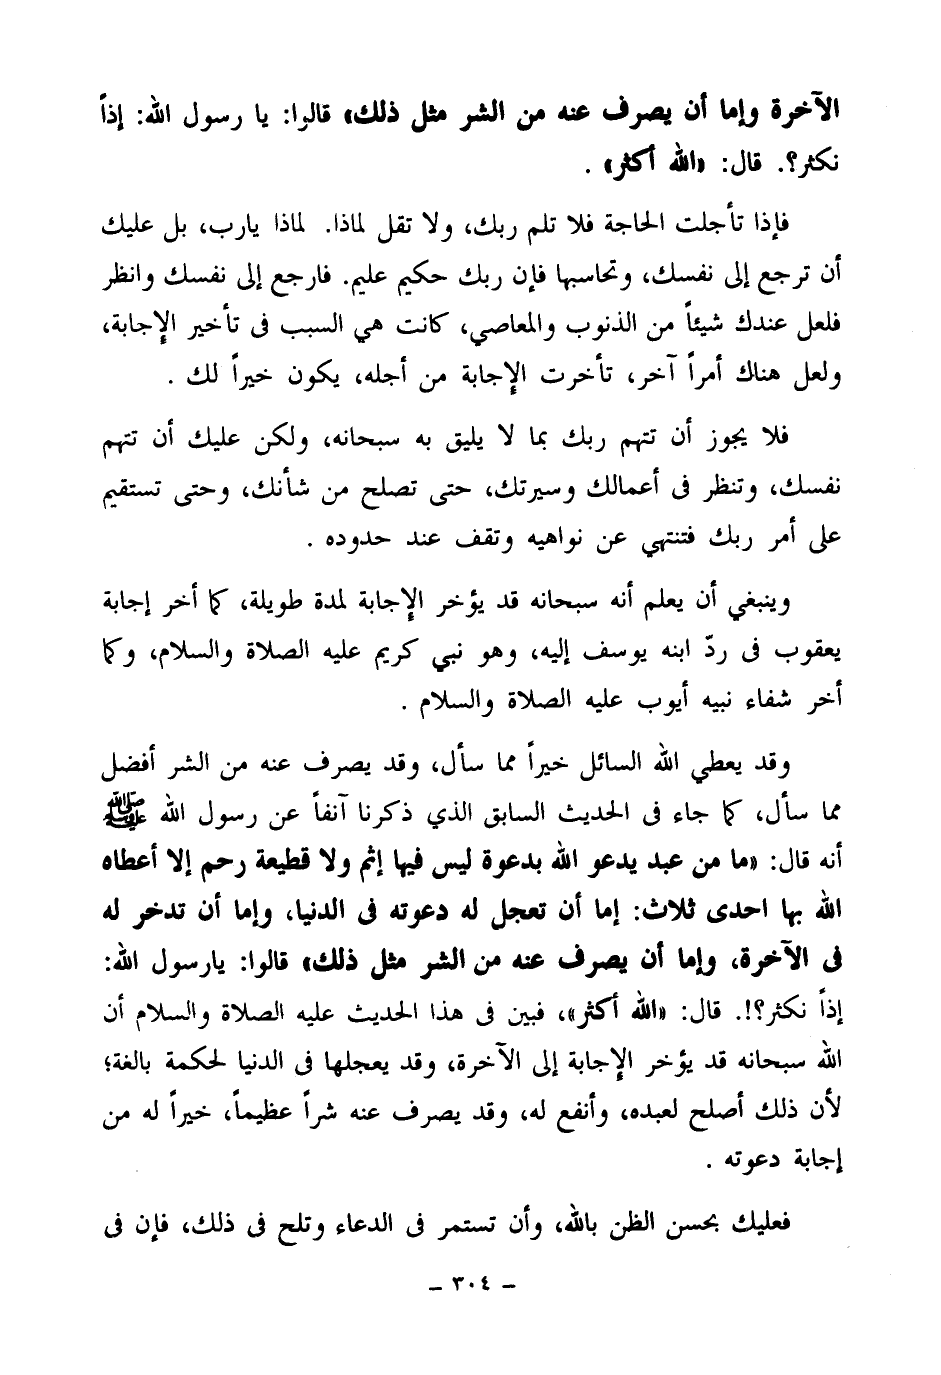 الآخرة وإما أن يصرف عنه من الشر مثل ذلك» قالوا: يا رسول الله: إذاً
نكثر؟. قال: «الله أكثر» .
فإذا تأجلت الحاجة فلا تلم ربك، ولا تقل لماذا. لماذا يارب، بل عليك
أن ترجع إلى نفسك، وتحاسبها فإن ربك حكيم عليم. فارجع إلى نفسك وانظر
فلعل عندك شيئاً من الذنوب والمعاصي، كانت هي السبب فى تأخير الإجابة،
ولعل هناك أمراً آخر، تأخرت الإجابة من أجله، يكون خيراً لك .
فلا يجوز أن تتهم ربك بما لا يليق به سبحانه، ولكن عليك أن تتهم
نفسك، وتنظر فى أعمالك وسيرتك، حتى تصلح من شأنك، وحتى تستقيم
على أمر ربك فتنتهي عن نواهيه وتقف عند حدوده .
وينبغي أن يعلم أنه سبحانه قد يؤخر الإجابة لمدة طويلة، كما أخر إجابة
يعقوب فى ردّ ابنه يوسف إليه، وهو نبي كريم عليه الصلاة والسلام، وكما
أخر شفاء نبيه أيوب عليه الصلاة والسلام .
وقد يعطي الله السائل خيراً مما سأل، وقد يصرف عنه من الشر أفضل
مما سأل، كما جاء فى الحديث السابق الذي ذكرنا آنفاً عن رسول الله ﷺ
أنه قال: «ما من عبد يدعو الله بدعوة ليس فيها إثم ولا قطيعة رحم إلا أعطاه
الله بها احدى ثلاث: إما أن تعجل له دعوته فى الدنيا، وإما أن تدخر له
فى الآخرة، وإما أن يصرف عنه من الشر مثل ذلك» قالوا: يارسول الله:
إذاً نكثر؟!. قال: «الله أكثر»، فبين فى هذا الحديث عليه الصلاة والسلام أن
الله سبحانه قد يؤخر الإجابة إلى الآخرة، وقد يعجلها فى الدنيا لحكمة بالغة؛
لأن ذلك أصلح لعبده، وأنفع له، وقد يصرف عنه شراً عظيماً، خيراً له من
إجابة دعوته .
فعليك بحسن الظن بالله، وأن تستمر فى الدعاء وتلح فى ذلك، فإن فى
– ٣٠٤ –